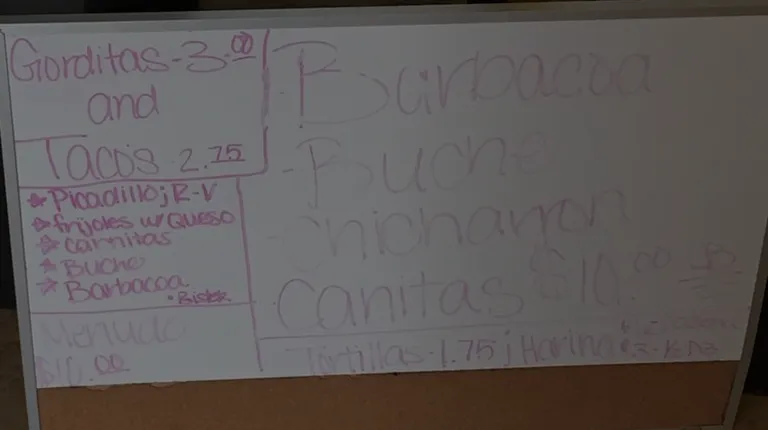 Gorditas-3.00
and
Tacos-2.75
Picadillo; R-V
frijoles w/ Queso
carnitas
Buche
Barbacoa
Bistek
Menudo
$10.00
-Barbacoa
-Buche
-Chicharron
-Canitas $10.00
Tortillas-1.75; Harina